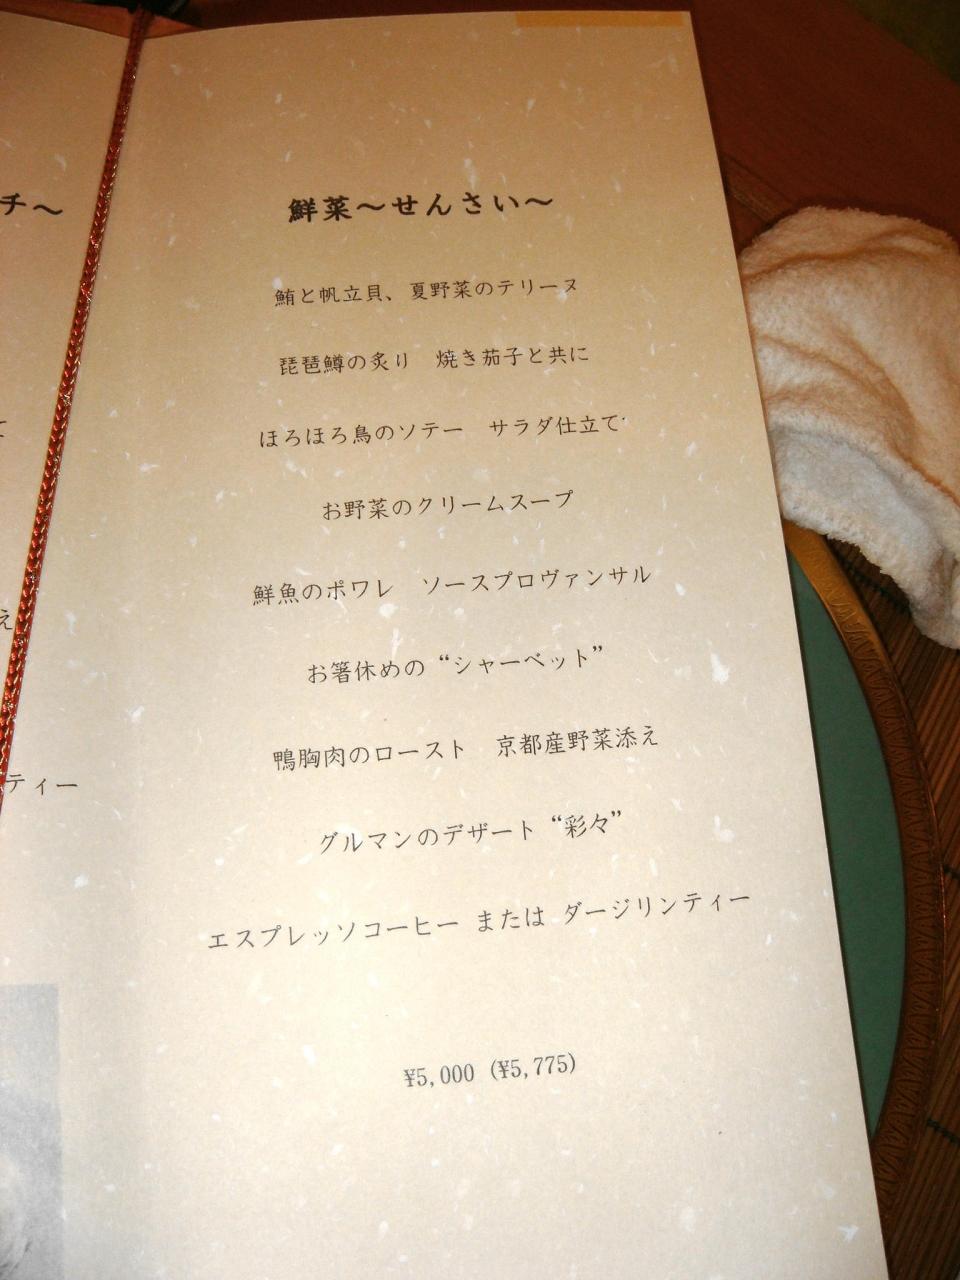 チ～
え
ティー
鮮菜～せんさい～
鮪と帆立貝、夏野菜のテリーヌ
琵琶鱒の炙り　焼き茄子と共に
ほろほろ鳥のソテー　サラダ仕立て
お野菜のクリームスープ
鮮魚のポワレ　ソースプロヴァンサル
お箸休めの“シャーベット”
鴨胸肉のロースト　京都産野菜添え
グルマンのデザート“彩々”
エスプレッソコーヒー または ダージリンティー
¥5,000 (¥5,775)